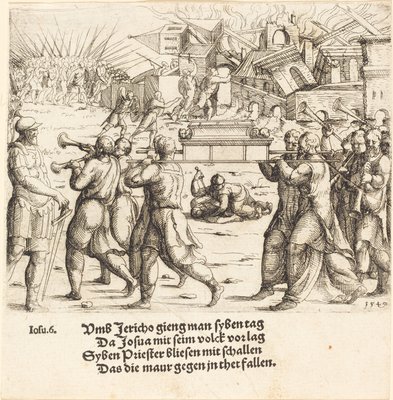 1549
Iosu. 6. Vmb Jericho gieng man syben tag
Da Josua mit seim volck vor lag
Syben Priester bliesen mit schallen
Das die maur gegen jn thet fallen.